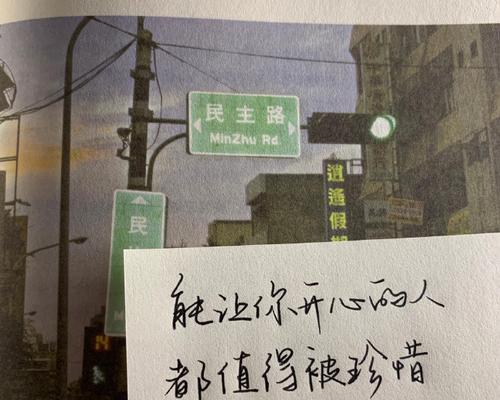 民主路
MinZhu Rd.
民
M
逍遥假期
14
能让你开心的人
都值得被珍惜